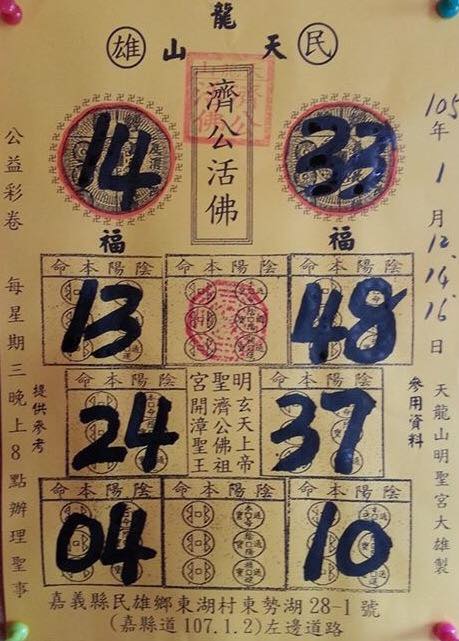 龍
雄 山 天 民
濟公活佛
105年1月12、14、16日
14 33
福 福
公益彩卷 每星期三晚上8點辦理聖事
提供參考
命本陽陰 命本陽陰 命本陽陰
13 48
命本陽陰 宮聖明 命本陽陰
玄天上帝
濟公佛祖
開漳聖王
24 37
命本陽陰 命本陽陰 命本陽陰
04 10
參用資料
天龍山明聖宮大雄製
嘉義縣民雄鄉東湖村東勢湖28-1號
(嘉縣道107.1.2)左邊道路